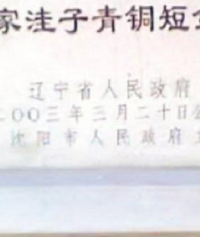 家洼子青铜短
辽宁省人民政府
二〇〇三年三月二十日公
沈阳市人民政府立